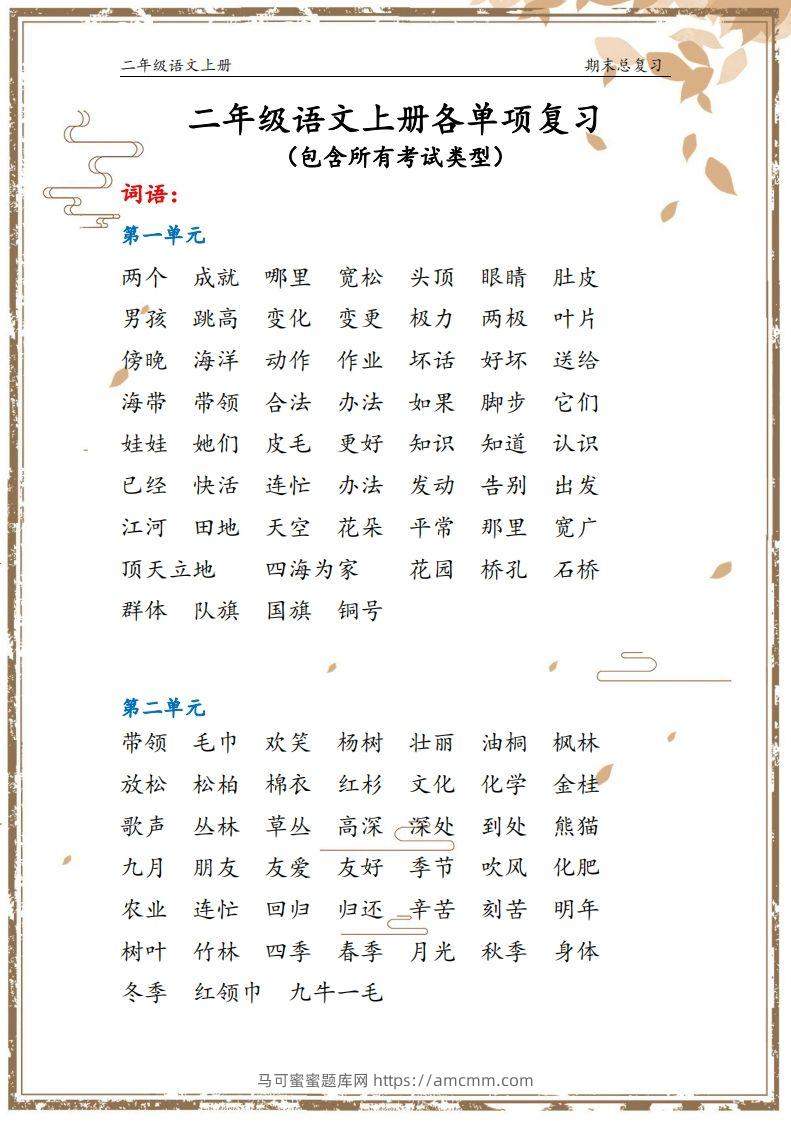 二年级语文上册 期末总复习
二年级语文上册各单项复习
（包含所有考试类型）
词语：
第一单元
两个 成就 哪里 宽松 头顶 眼睛 肚皮
男孩 跳高 变化 变更 极力 两极 叶片
傍晚 海洋 动作 作业 坏话 好坏 送给
海带 带领 合法 办法 如果 脚步 它们
娃娃 她们 皮毛 更好 知识 知道 认识
已经 快活 连忙 办法 发动 告别 出发
江河 田地 天空 花朵 平常 那里 宽广
顶天立地 四海为家 花园 桥孔 石桥
群体 队旗 国旗 铜号
第二单元
带领 毛巾 欢笑 杨树 壮丽 油桐 枫林
放松 松柏 棉衣 红杉 文化 化学 金桂
歌声 丛林 草丛 高深 深处 到处 熊猫
九月 朋友 友爱 友好 季节 吹风 化肥
农业 连忙 回归 归还 辛苦 刻苦 明年
树叶 竹林 四季 春季 月光 秋季 身体
冬季 红领巾 九牛一毛
马可蜜蜜题库网 https://amcmm.com